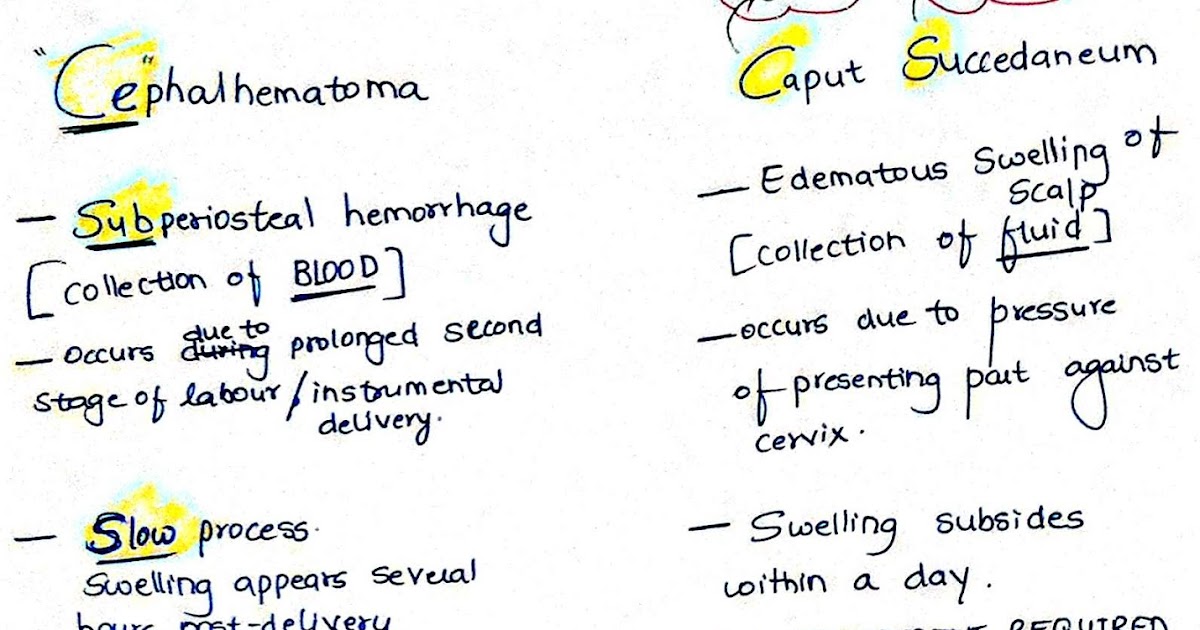 "Ce"phalhematoma
— Subperiosteal hemorrhage
[collection of BLOOD]
— occurs due to during prolonged second
stage of labour / instrumental
delivery.
— Slow process.
Swelling appears several
hours post-delivery
Caput Succedaneum
— Edematous Swelling of
Scalp
[collection of fluid]
— occurs due to pressure
of presenting part against
cervix.
— Swelling subsides
within a day.
REQUIRED